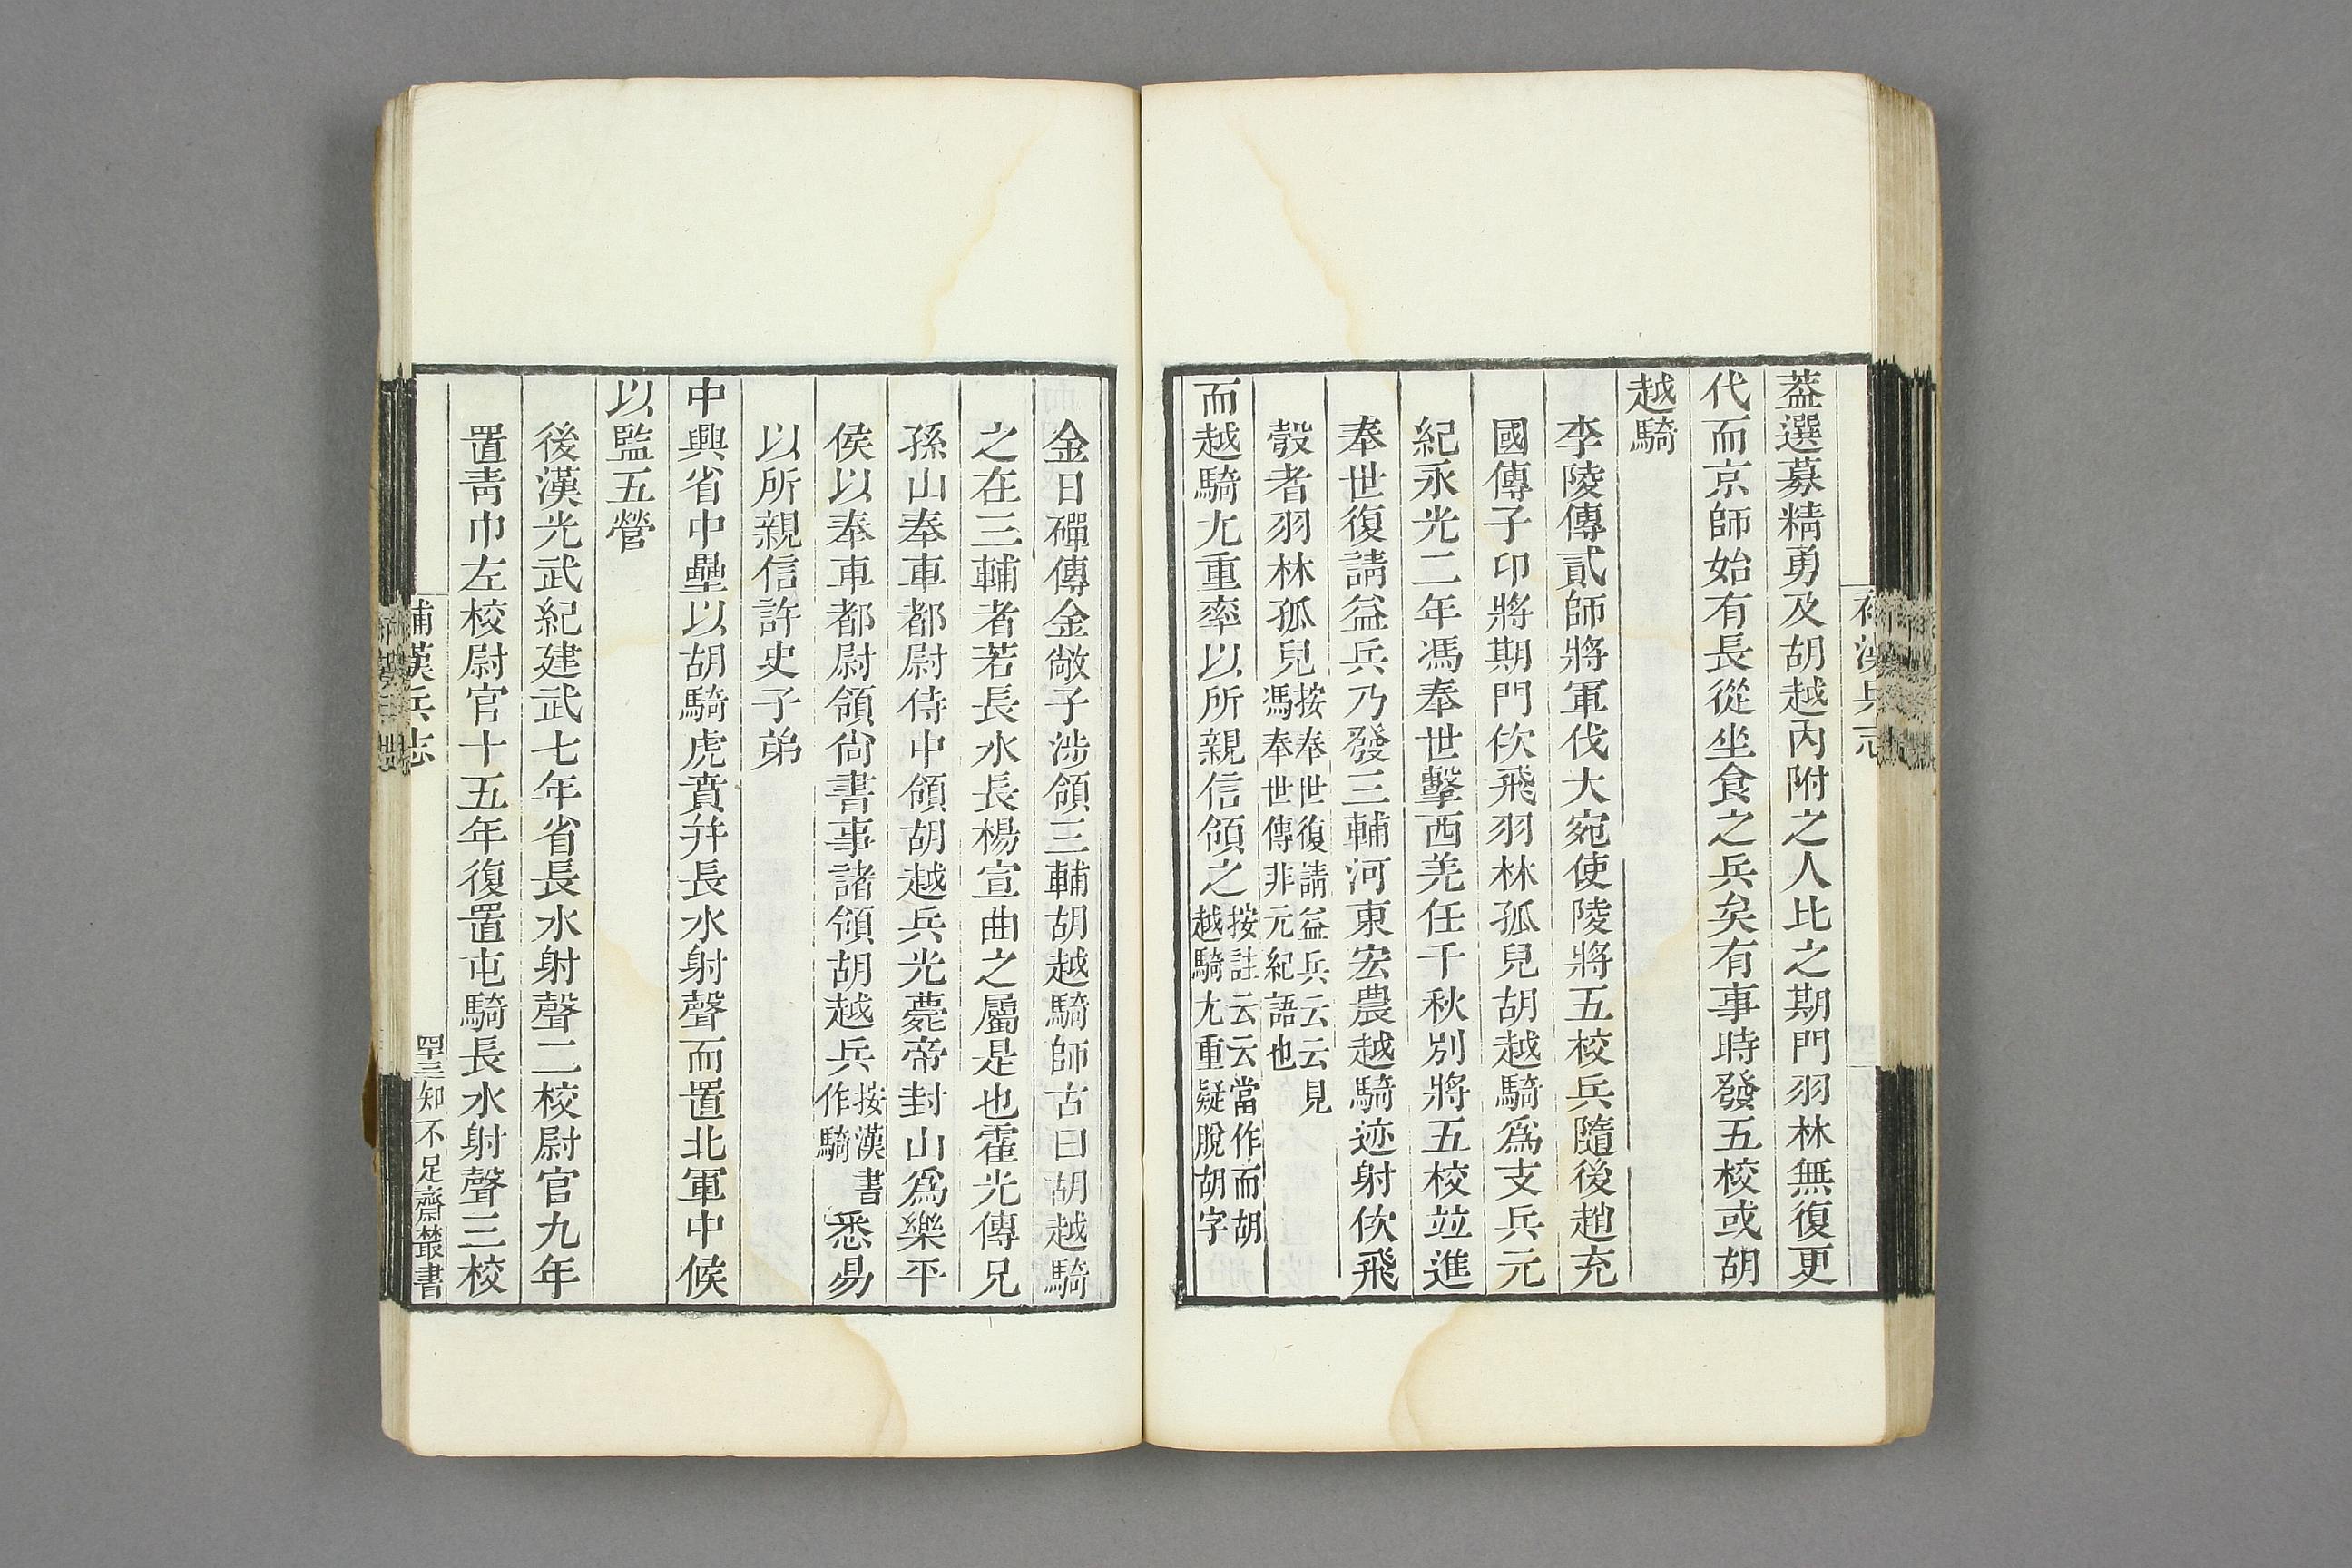 葢選募精勇及胡越内附之人比之期門羽林無復更
代而京師始有長從坐食之兵矣有事時發五校或胡
越騎
李陵傳貳師將軍伐大宛使陵將五校兵隨後趙充
國傳子卬將期門佽飛羽林孤兒胡越騎爲支兵元
紀永光二年馮奉世擊西羌任千秋別將五校竝進
奉世復請益兵乃發三輔河東宏農越騎迹射佽飛
彀者羽林孤兒按奉世復請益兵云云見馮奉世傳非元紀語也
而越騎尤重率以所親信領之按註云云當作而胡越騎尤重疑脫胡字
金日磾傳金敞子涉領三輔胡越騎師古曰胡越騎
之在三輔者若長水長楊宣曲之屬是也霍光傳兄
孫山奉車都尉侍中領胡越兵光薨帝封山爲樂平
侯以奉車都尉領尙書事諸領胡越兵按漢書作騎悉易
以所親信許史子弟
中興省中壘以胡騎虎賁幷長水射聲而置北軍中候
以監五營
後漢光武紀建武七年省長水射聲二校尉官九年
置靑巾左校尉官十五年復置屯騎長水射聲三校
補漢兵志
四十三知不足齋叢書